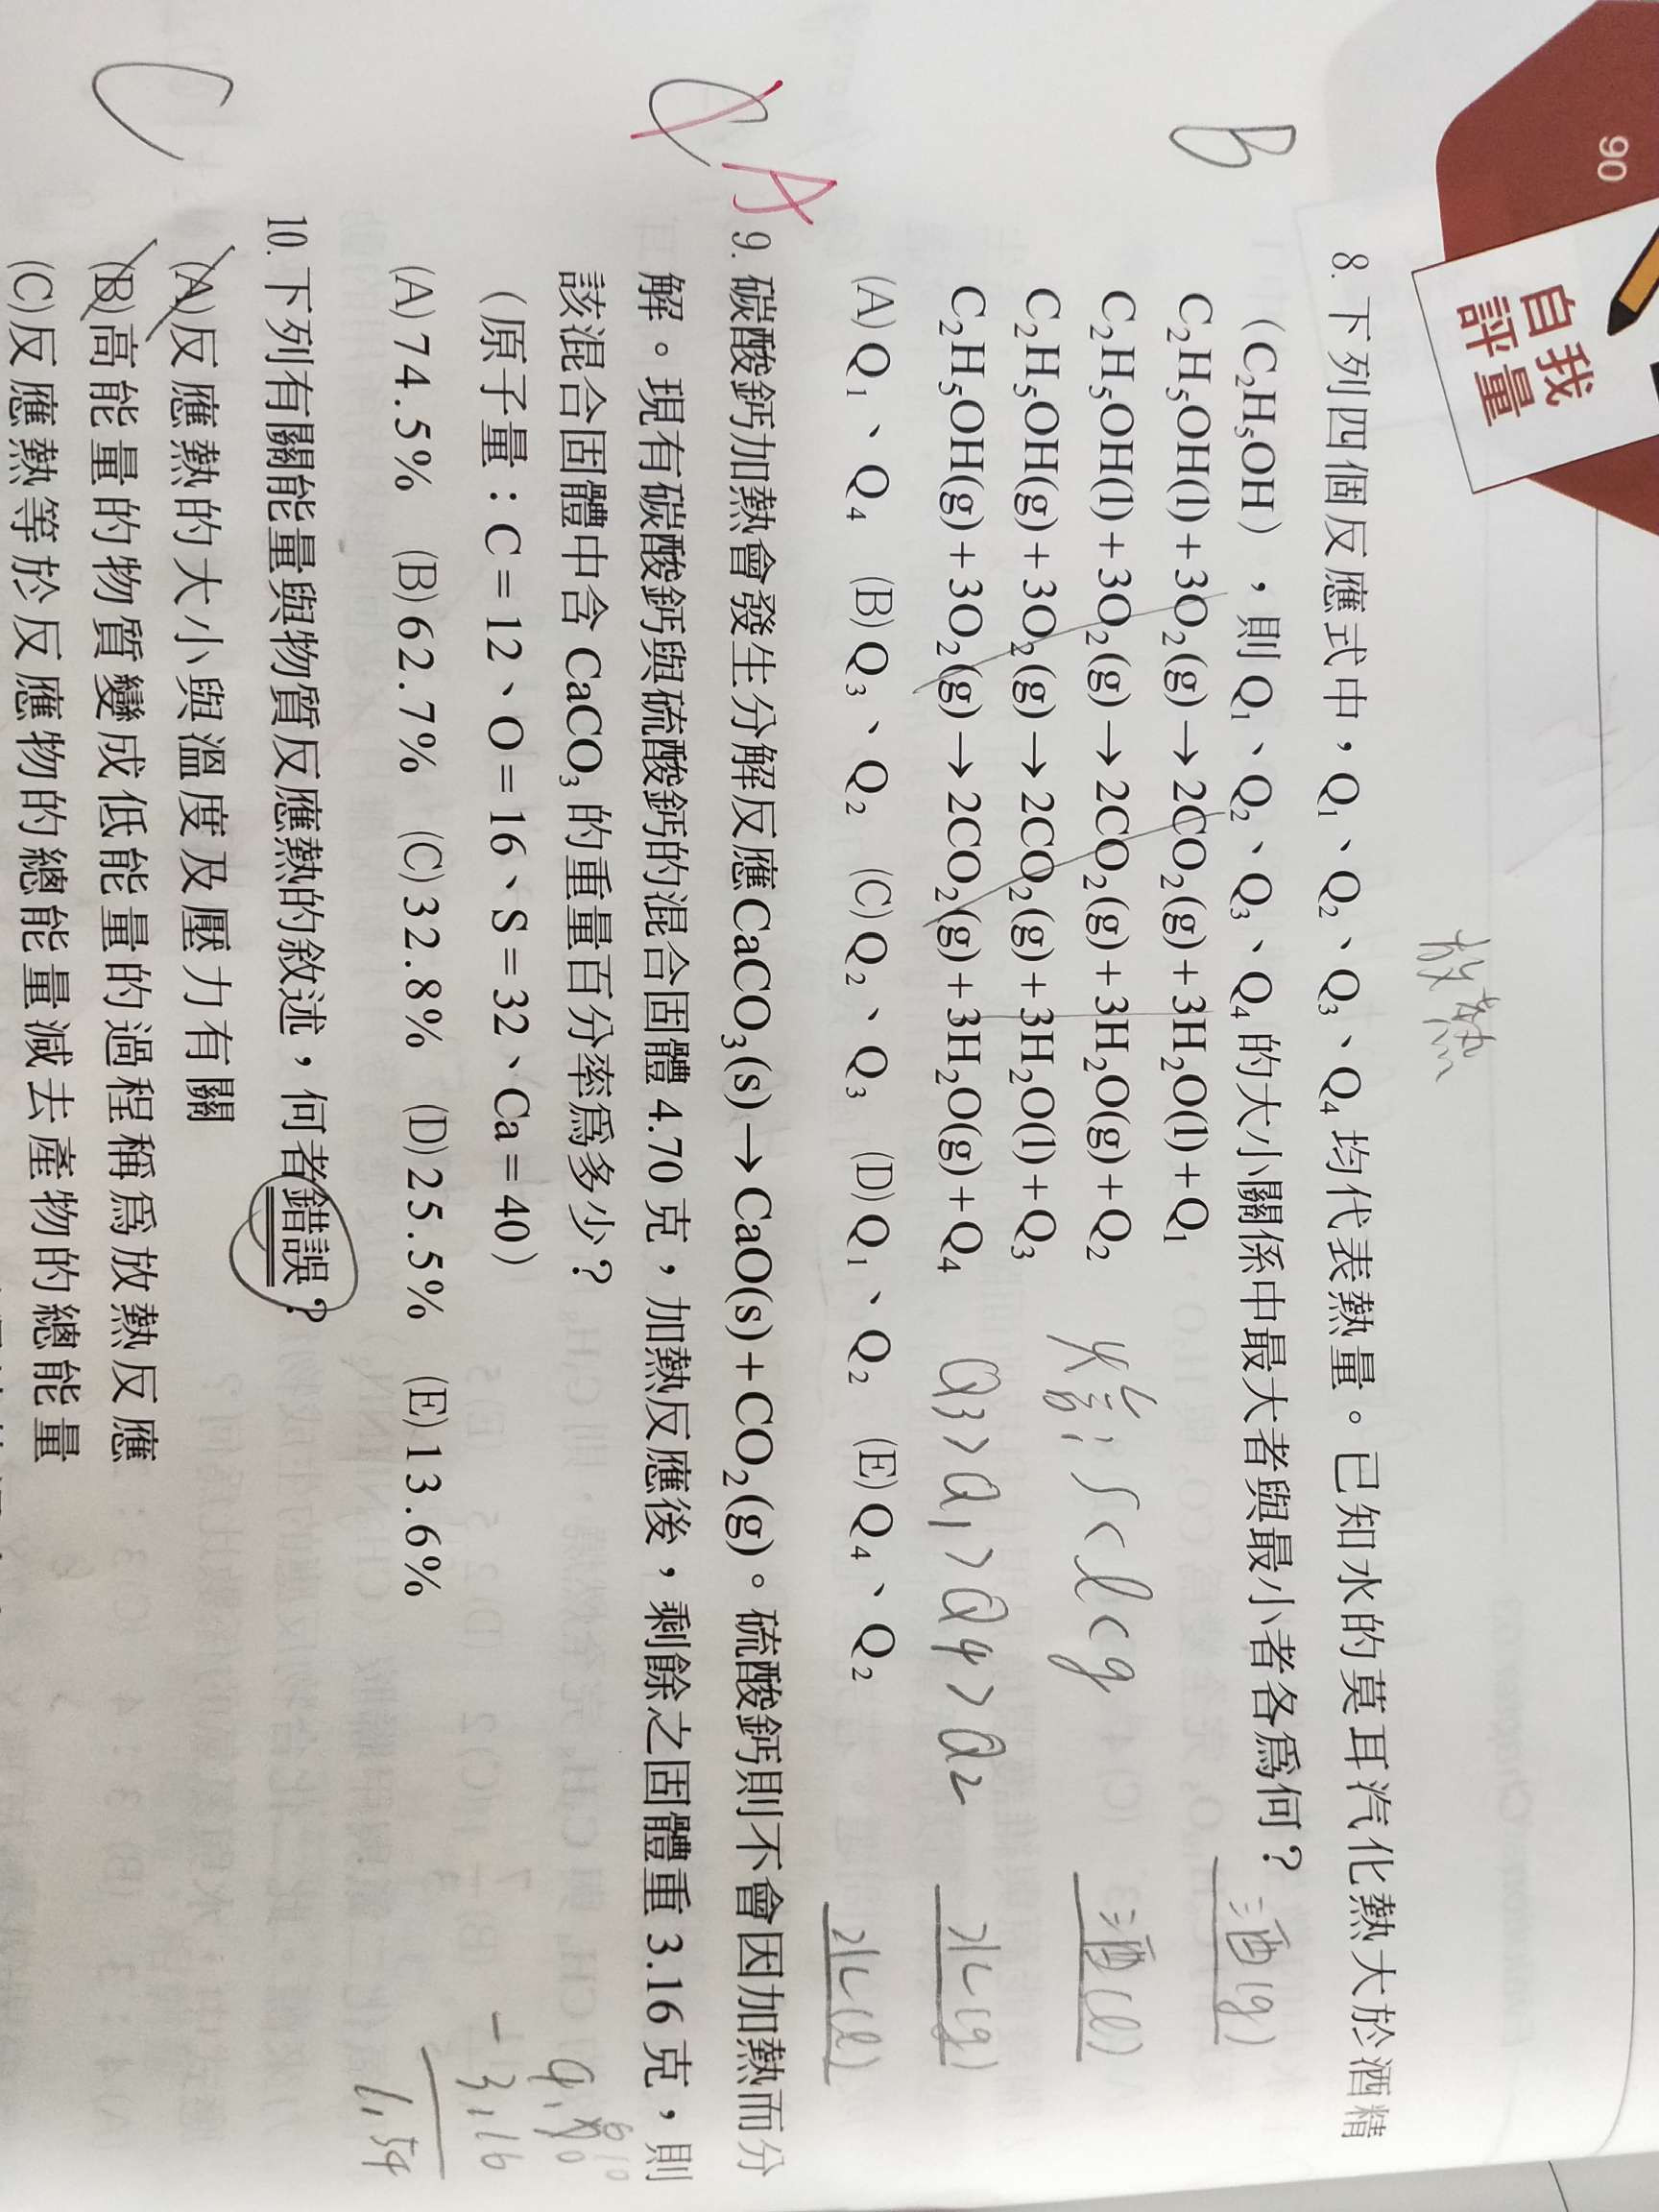 90
自我
評量
放熱
B
8. 下列四個反應式中，Q₁、Q₂、Q₃、Q₄ 均代表熱量。已知水的莫耳汽化熱大於酒精
（C₂H₅OH），則 Q₁、Q₂、Q₃、Q₄ 的大小關係中最大者與最小者各爲何？
C₂H₅OH(l)＋3O₂(g)→2CO₂(g)＋3H₂O(l)＋Q₁
C₂H₅OH(l)＋3O₂(g)→2CO₂(g)＋3H₂O(g)＋Q₂
C₂H₅OH(g)＋3O₂(g)→2CO₂(g)＋3H₂O(l)＋Q₃
C₂H₅OH(g)＋3O₂(g)→2CO₂(g)＋3H₂O(g)＋Q₄
s<l<g
Q3>Q1>Q4>Q2
酒(g)
酒(l)
水(g)
水(l)
(A) Q₁、Q₄ (B) Q₃、Q₂ (C) Q₂、Q₃ (D) Q₁、Q₂ (E) Q₄、Q₂
C A
9. 碳酸鈣加熱會發生分解反應 CaCO₃(s)→CaO(s)＋CO₂(g)。硫酸鈣則不會因加熱而分
解。現有碳酸鈣與硫酸鈣的混合固體 4.70 克，加熱反應後，剩餘之固體重 3.16 克，則
該混合固體中含 CaCO₃ 的重量百分率爲多少？
（原子量：C＝12、O＝16、S＝32、Ca＝40）
(A) 74.5% (B) 62.7% (C) 32.8% (D) 25.5% (E) 13.6%
4.70
- 3.16
1.54
C
10. 下列有關能量與物質反應熱的敘述，何者錯誤？
(A) 反應熱的大小與溫度及壓力有關
(B) 高能量的物質變成低能量的過程稱爲放熱反應
(C) 反應熱等於反應物的總能量減去產物的總能量